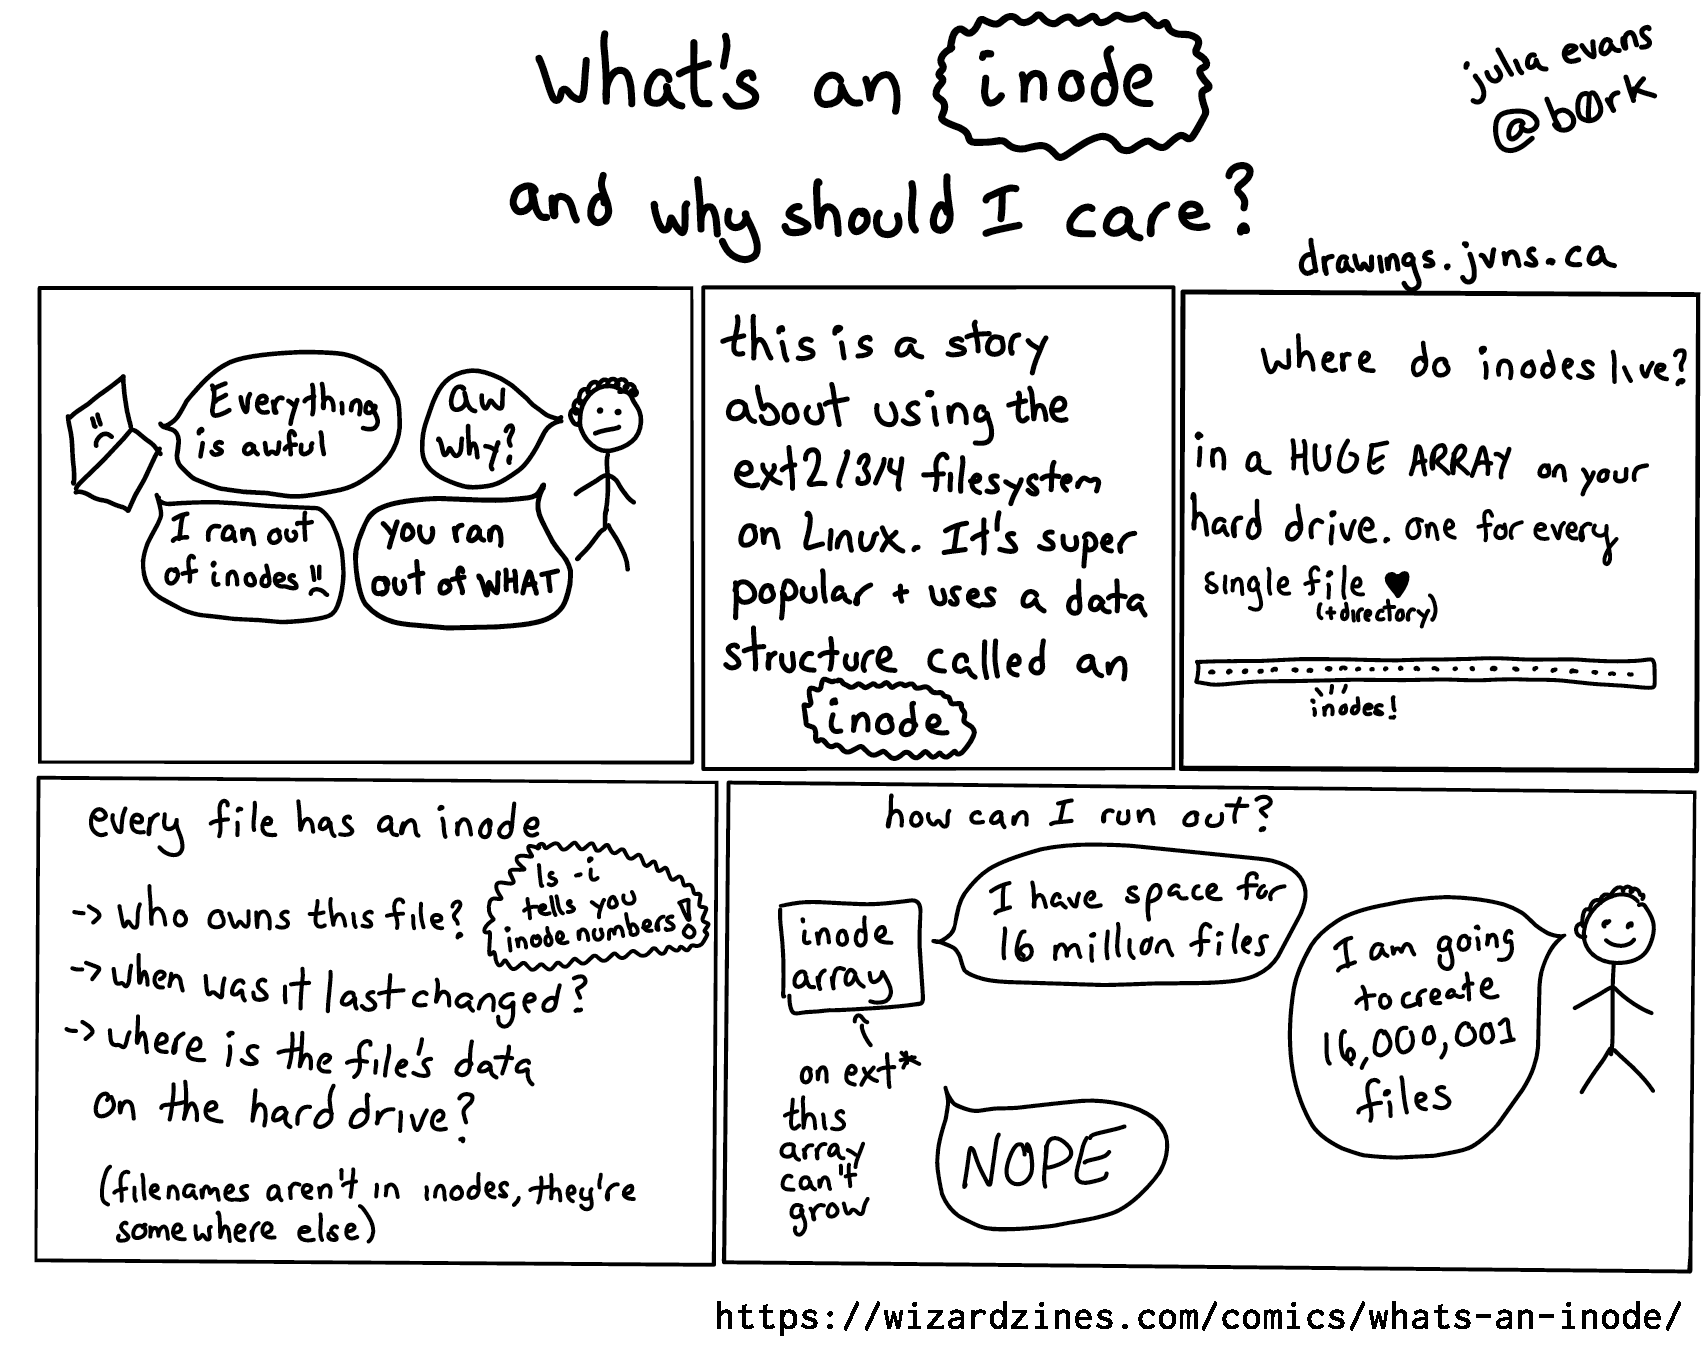 What's an inode
and why should I care?
julia evans
@b0rk
drawings.jvns.ca
Everything
is awful
aw
why?
I ran out
of inodes
you ran
out of WHAT
this is a story
about using the
ext2/3/4 filesystem
on Linux. It's super
popular + uses a data
structure called an
inode
where do inodes live?
in a HUGE ARRAY on your
hard drive. one for every
single file ♥
(+directory)
inodes!
every file has an inode
ls -i
tells you
inode numbers!
-> who owns this file?
-> when was it last changed?
-> where is the file's data
on the hard drive?
(filenames aren't in inodes, they're
somewhere else)
how can I run out?
inode
array
I have space for
16 million files
I am going
to create
16,000,001
files
on ext*
this
array
can't
grow
NOPE
https://wizardzines.com/comics/whats-an-inode/